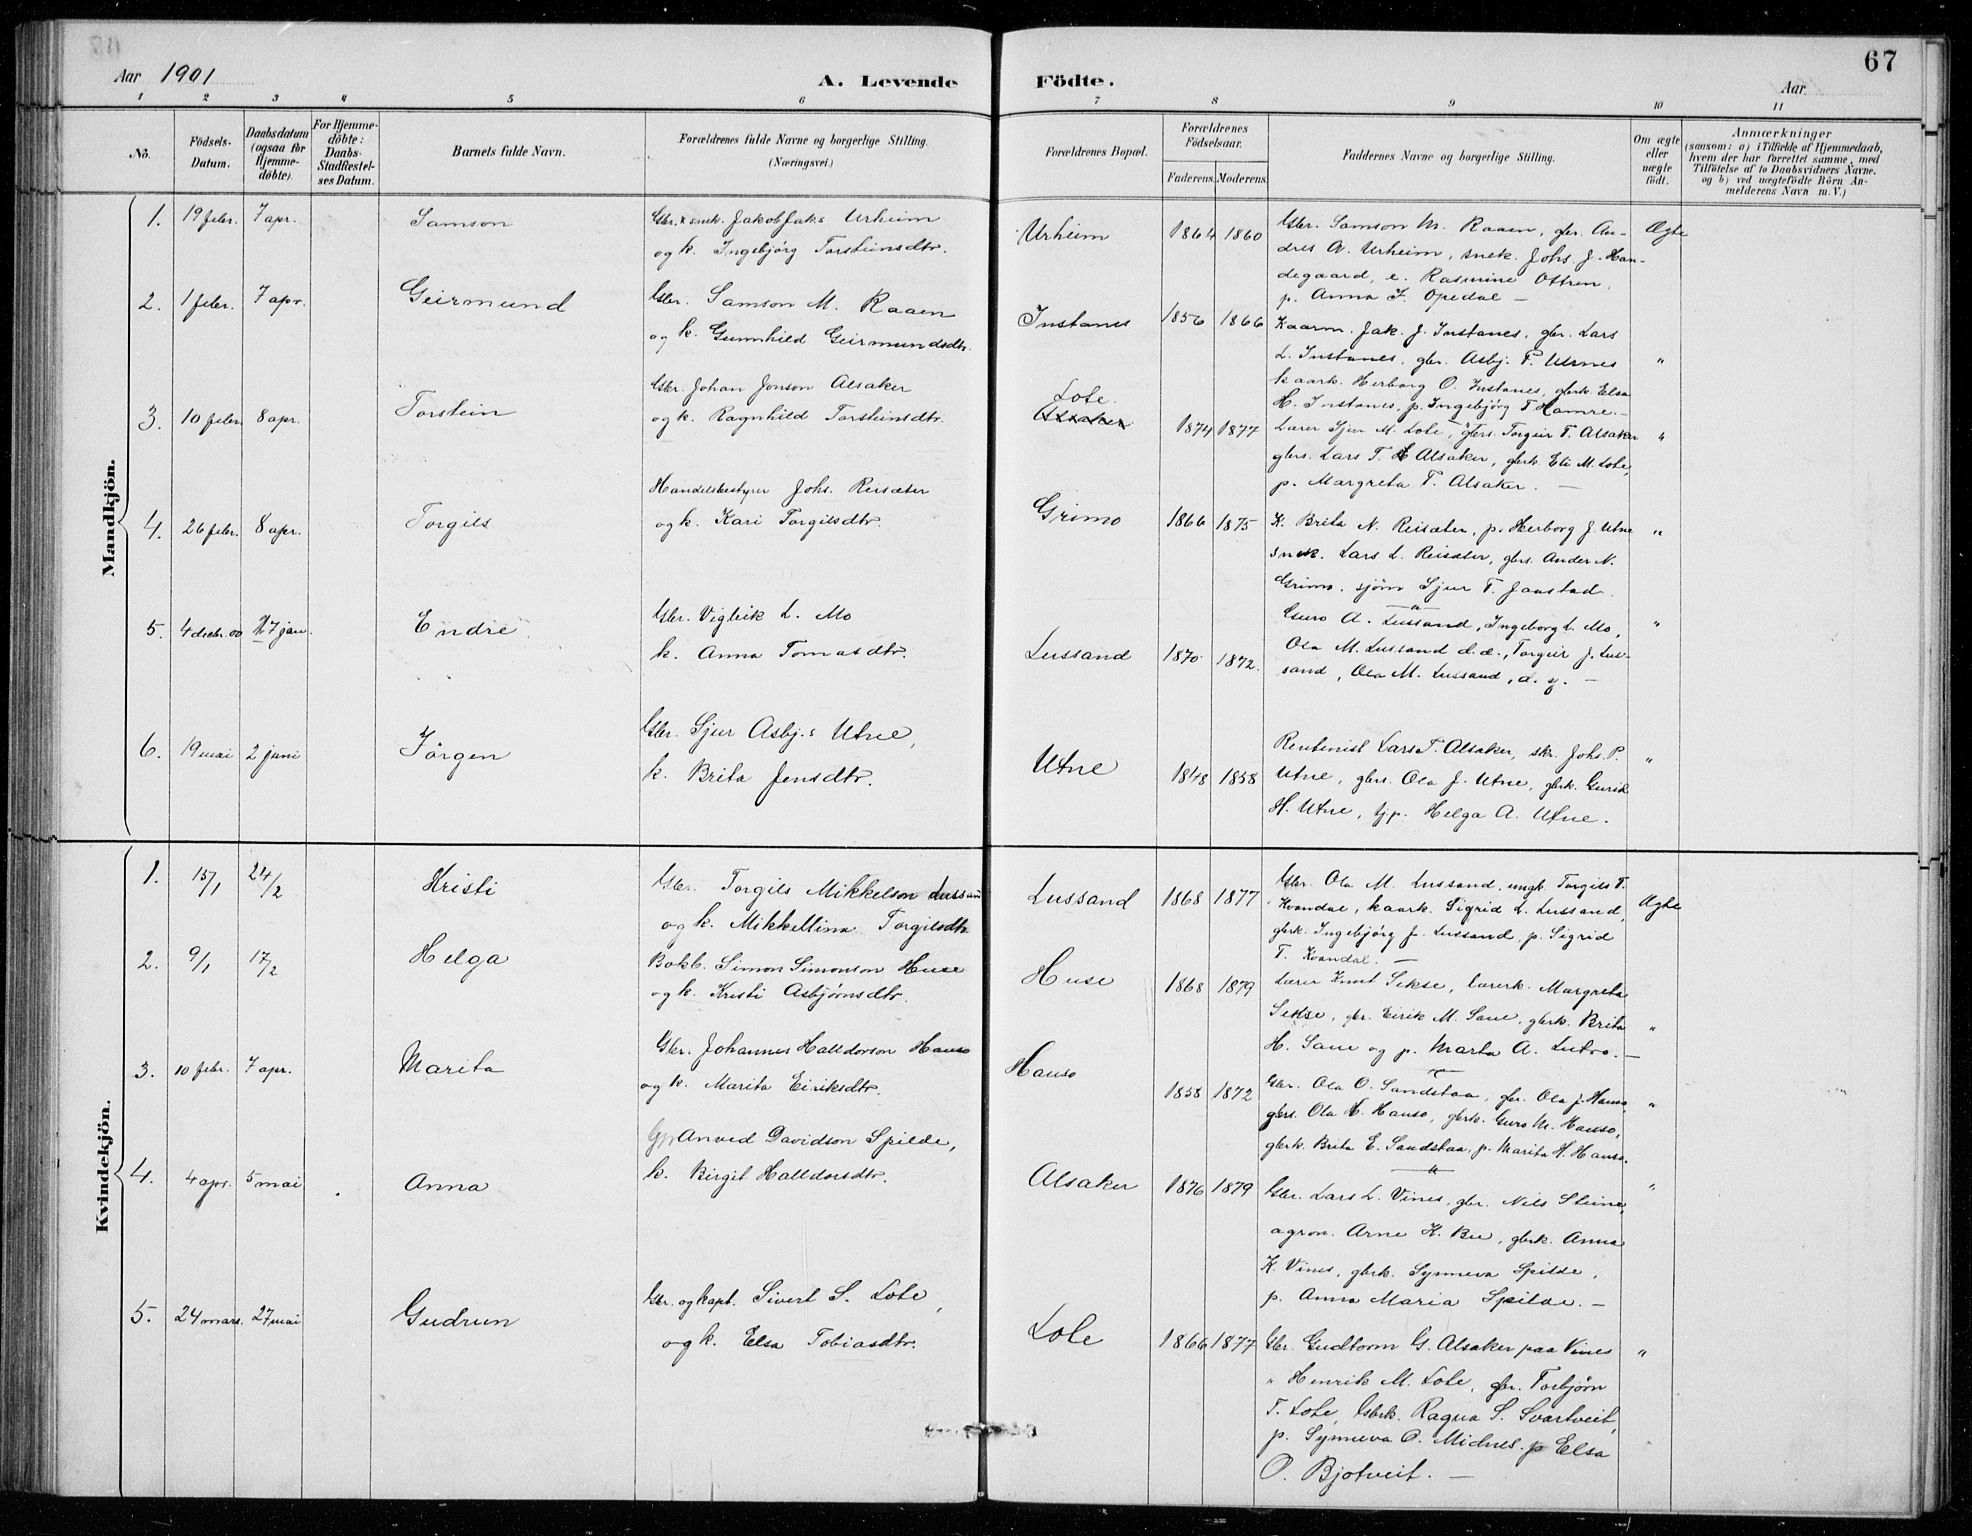 67
Aar 1901
A. Levende Födte.
Aar
1 2 3 4 5 6 7 8 9 10 11
No.
Födsels-Datum.
Daabsdatum (ogsaa for Hjemmedöbte).
For Hjemmedöbte: Daabs-Stadfæstelses Datum.
Barnets fulde Navn.
Forældrenes fulde Navne og borgerlige Stilling. (Næringsvei.)
Forældrenes Bopæl.
Forældrenes Födselsaar.
Faderens. Moderens.
Faddernes Navne og borgerlige Stilling.
Om ægte eller uægte födt.
Anmærkninger
(saasom: a) i Tilfælde af Hjemmedaab, hvem der har forrettet samme, med Tilföielse af to Daabsvidners Navne. og b) ved uægtefödte Börn Anmelderens Navn m. V.)
Mandkjön.
1. 19 febr. 7 apr. Samson
Gbr. & snek. Jakob Jak.s Urheim
og k. Ingebjörg Torsteinsdtr.
Urheim 1864 1860
Gbr. Samson M. Raaen, gbr. An-
dres A. Urheim, snek. Johs. J. Han-
degaard, e. Rasmine Ottren,
p. Anna J. Opedal —
Ægte
2. 1 febr. 7 apr. Geirmund
Gbr. Samson M. Raaen
og k. Gunnhild Geirmundsdtr.
Instanes 1856 1866
Kaarm. Jak. J. Instanes, gbr. Lars
L. Instanes, gbr. Asbj. T. Utnes
kaark. Herborg O. Instanes, gbrk. Elsa
H. Instanes, p. Ingebjörg T. Hamre. —
"
3. 10 febr. 8 apr. Torstein
Gbr. Johan Jonson Alsaker
og k. Ragnhild Torsteinsdtr.
Lote.
Alsaker 1874 1877
Lærer Sjur M. Lote, gbrs. Torgeir T. Alsaker
gbrs. Lars T. Alsaker, gbrk. Eli M. Lote,
p. Margreta T. Alsaker. —
"
4. 26 febr. 8 apr. Torgils
Handelsbestyrer Johs. Reisæter
og k. Kari Torgilsdtr.
Grimo 1866 1875
K. Brita N. Reisæter, p. Herborg J. Utne
snek. Lars L. Reisæter, gbrs. Ander N.
Grimo, sjöm Sjur T. Jaastad.
"
5. 4 decbr. 00 27 jan. Endre
Gbr. Vigleik L. Mo
k. Anna Tomasdtr.
Lussand 1870 1872.
Guro A. Lussand, Ingeborg L. Mo,
Ola M. Lussand d.æ., Torgeir J. Lus-
sand, Ola M. Lussand, d. y. —
"
6. 19 mai 2 juni Jörgen
Gbr. Sjur Asbj.s Utne,
k. Brita Jensdtr.
Utne 1848 1858
Rentenist Lars T. Alsaker, skr. Johs. P.
Utne, gbrs. Ola J. Utne, gbrk. Gurid
H. Utne, tjp. Helga A. Utne.
"
Kvindekjön.
1. 15/1 24/2 Kristi
Gbr. Torgils Mikkelson Lussand
og k. Mikkellina Torgilsdtr.
Lussand 1868 1877
Gbr. Ola M. Lussand, ungk. Torgils T.
Kvandal, kaark. Sigrid L. Lussand,
gbrk. Ingebjörg J. Lussand, p. Sigrid
T. Kvandal. —
Ægte
2. 9/1 17/2 Helga
Bokb. Simon Simonson Huse
og k. Kristi Asbjörnsdtr.
Huse 1868 1879
Lærer Knut Sekse, lærerk. Margreta
Sekse, gbr. Eirik M. Saue, gbrk. Brita
H. Saue og p. Marta A. Lutro. —
"
3. 10 febr. 7 apr. Marita
Gbr. Johannes Halldorson Hauso
og k. Marita Eiriksdtr.
Hauso 1858 1872
Gbr. Ola O. Sandstaa, gbr. Ola J. Hauso,
gbrs. Ola H. Hauso, gbrk. Guro M. Hauso,
gbrk. Brita E. Sandstaa, p. Marita H. Hauso.
"
4. 4 apr. 5 mai Anna
Anved Davidson Spilde,
k. Birgit Halldorsdtr.
Alsaker 1876 1879
Gbr. Lars L. Vines, gbr. Nils Steine,
agron. Arne K. Bu, gbrk. Anna
K. Vines, gbrk. Synneva Spilde,
p. Anna Maria Spilde. —
"
5. 24 mars. 27 mai Gudrun
Gbr. og kapt. Sivert S. Lote,
og k. Elsa Tobiasdtr.
Lote 1866 1877
Gbr. Gudtorm G. Alsaker paa Vines
" Henrik M. Lote, gbr. Torbjörn
T. Lote, Gbrk. Ragna S. Svartveit,
p. Synneva O. Midnes. p Elsa
O. Bjotveit. —
"